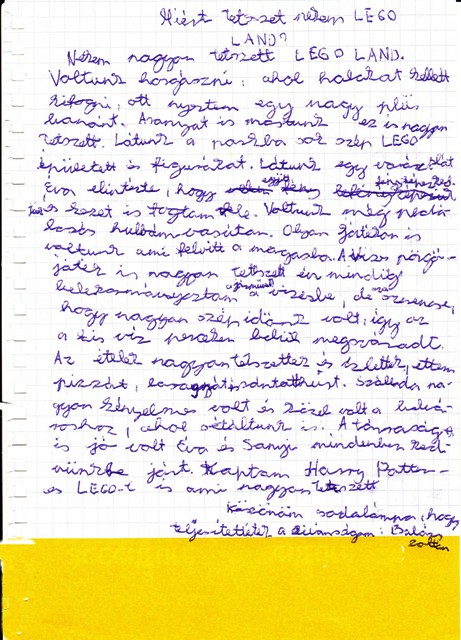 Miért tetszet nekem LEGO
LAND?
Nekem nagyon tetszett LEGO LAND.
Voltunk horgászni, ahol halakat kellett
kifogni, ott nyertem egy nagy plüs
banánt. Aranyat is mostunk ez is nagyon
tetszett. Látunk a parkba sok szép LEGO
épületett és figurákat. Látunk egy varázslat
Éva elintézte, hogy
és kezet is fogtam vele. Voltunk még
hullámvasútan. Olyan játékon is
voltunk ami felvitt a magasba. A vizes
játék is nagyon tetszett én mindig
belekormányoztam a vizesbe, de szerencse,
hogy nagyon szép időnk volt, így az
a kis víz perceken belül megszáradt.
Az ételek nagyon tetszettek és izlettek, ettem
pizzát, Szálloda na-
gyon kényelmes volt és közel volt a belvá-
roshoz, ahol sétáltunk is. A társaság
is jó volt Éva és Sanyi mindenben ked-
vünkbe járt. Kaptam Harry Potter-
es LEGO-t is ami nagyon tetszett
hogy
teljesítettétek a kívánságom: Balázs
Zoltán